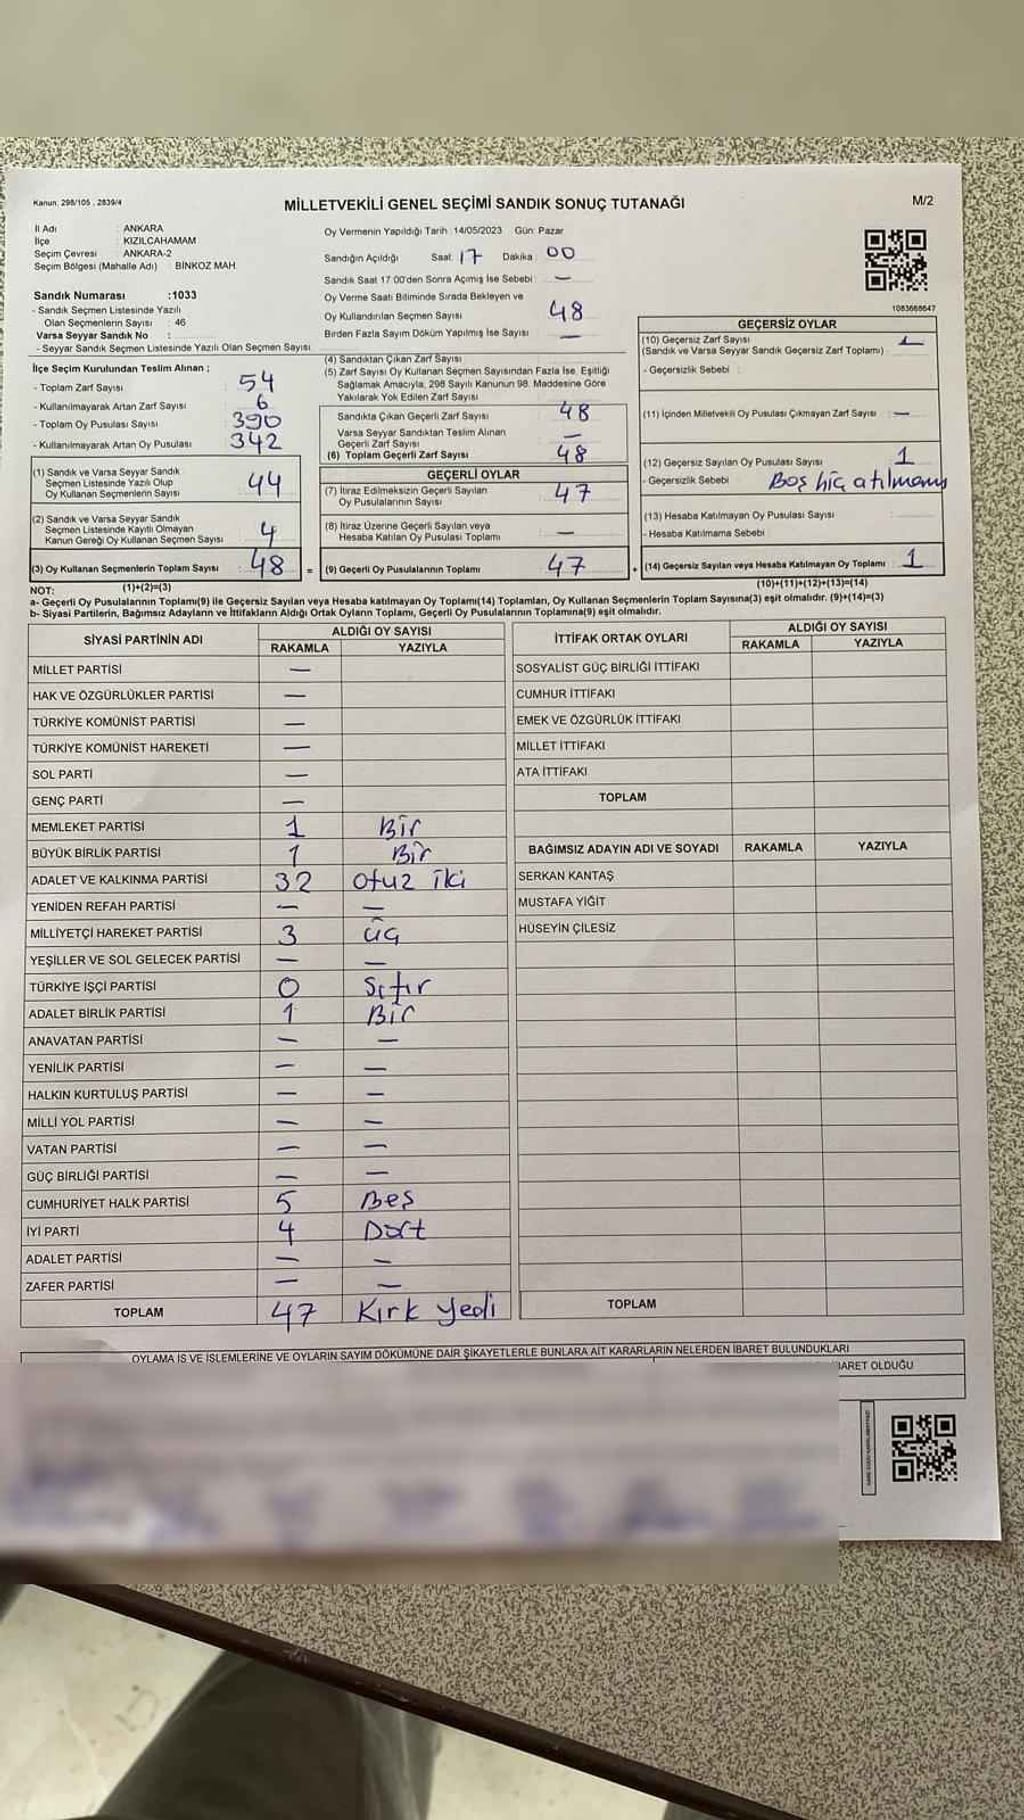 Kanun: 298/105 , 2839/4
MİLLETVEKİLİ GENEL SEÇİMİ SANDIK SONUÇ TUTANAĞI
M/2
İl Adı : ANKARA
İlçe : KIZILCAHAMAM
Seçim Çevresi : ANKARA-2
Seçim Bölgesi (Mahalle Adı) : BİNKOZ MAH
Sandık Numarası :1033
- Sandık Seçmen Listesinde Yazılı
Olan Seçmenlerin Sayısı : 46
Varsa Seyyar Sandık No :
- Seyyar Sandık Seçmen Listesinde Yazılı Olan Seçmen Sayısı
Oy Vermenin Yapıldığı Tarih : 14/05/2023 Gün: Pazar
Sandığın Açıldığı Saat: 17 Dakika : 00
Sandık Saat 17:00'den Sonra Açımış İse Sebebi : —
Oy Verme Saati Bitiminde Sırada Bekleyen ve
Oy Kullandırılan Seçmen Sayısı : 48
Birden Fazla Sayım Döküm Yapılmış İse Sayısı : —
1083666647
İlçe Seçim Kurulundan Teslim Alınan ;
- Toplam Zarf Sayısı : 54
- Kullanılmayarak Artan Zarf Sayısı : 6
- Toplam Oy Pusulası Sayısı : 390
- Kullanılmayarak Artan Oy Pusulası : 342
(1) Sandık ve Varsa Seyyar Sandık
Seçmen Listesinde Yazılı Olup
Oy Kullanan Seçmenlerin Sayısı 44
(2) Sandık ve Varsa Seyyar Sandık
Seçmen Listesinde Kayıtlı Olmayan
Kanun Gereği Oy Kullanan Seçmen Sayısı 4
(3) Oy Kullanan Seçmenlerin Toplam Sayısı 48 =
(4) Sandıktan Çıkan Zarf Sayısı
(5) Zarf Sayısı Oy Kullanan Seçmen Sayısından Fazla İse, Eşitliği
Sağlamak Amacıyla, 298 Sayılı Kanunun 98. Maddesine Göre
Yakılarak Yok Edilen Zarf Sayısı
Sandıkta Çıkan Geçerli Zarf Sayısı : 48
Varsa Seyyar Sandıktan Teslim Alınan
Geçerli Zarf Sayısı —
(6) Toplam Geçerli Zarf Sayısı 48
GEÇERLİ OYLAR
(7) İtiraz Edilmeksizin Geçerli Sayılan
Oy Pusulalarının Sayısı 47
(8) İtiraz Üzerine Geçerli Sayılan veya
Hesaba Katılan Oy Pusulası Toplamı —
(9) Geçerli Oy Pusulalarının Toplamı 47 +
GEÇERSİZ OYLAR
(10) Geçersiz Zarf Sayısı 1
(Sandık ve Varsa Seyyar Sandık Geçersiz Zarf Toplamı)
- Geçersizlik Sebebi :
(11) İçinden Milletvekili Oy Pusulası Çıkmayan Zarf Sayısı —
(12) Geçersiz Sayılan Oy Pusulası Sayısı 1
- Geçersizlik Sebebi : Boş hiç atılmamış
(13) Hesaba Katılmayan Oy Pusulası Sayısı
- Hesaba Katılmama Sebebi
(14) Geçersiz Sayılan veya Hesaba Katılmayan Oy Toplamı 1
NOT: (1)+(2)=(3) (10)+(11)+(12)+(13)=(14)
a- Geçerli Oy Pusulalarının Toplamı(9) ile Geçersiz Sayılan veya Hesaba katılmayan Oy Toplamı(14) Toplamları, Oy Kullanan Seçmenlerin Toplam Sayısına(3) eşit olmalıdır. (9)+(14)=(3)
b- Siyasi Partilerin, Bağımsız Adayların ve İttifakların Aldığı Ortak Oyların Toplamı, Geçerli Oy Pusulalarının Toplamına(9) eşit olmalıdır.
SİYASİ PARTİNİN ADI ALDIĞI OY SAYISI
RAKAMLA YAZIYLA
MİLLET PARTİSİ —
HAK VE ÖZGÜRLÜKLER PARTİSİ —
TÜRKİYE KOMÜNİST PARTİSİ —
TÜRKİYE KOMÜNİST HAREKETİ —
SOL PARTİ —
GENÇ PARTİ —
MEMLEKET PARTİSİ 1 Bir
BÜYÜK BİRLİK PARTİSİ 1 Bir
ADALET VE KALKINMA PARTİSİ 32 otuz iki
YENİDEN REFAH PARTİSİ — —
MİLLİYETÇİ HAREKET PARTİSİ 3 üç
YEŞİLLER VE SOL GELECEK PARTİSİ — —
TÜRKİYE İŞÇİ PARTİSİ 0 Sıfır
ADALET BİRLİK PARTİSİ 1 Bir
ANAVATAN PARTİSİ — —
YENİLİK PARTİSİ — —
HALKIN KURTULUŞ PARTİSİ — —
MİLLİ YOL PARTİSİ — —
VATAN PARTİSİ — —
GÜÇ BİRLİĞİ PARTİSİ — —
CUMHURİYET HALK PARTİSİ 5 Beş
İYİ PARTİ 4 Dört
ADALET PARTİSİ — —
ZAFER PARTİSİ — —
TOPLAM 47 Kırk yedi
İTTİFAK ORTAK OYLARI ALDIĞI OY SAYISI
RAKAMLA YAZIYLA
SOSYALİST GÜÇ BİRLİĞİ İTTİFAKI
CUMHUR İTTİFAKI
EMEK VE ÖZGÜRLÜK İTTİFAKI
MİLLET İTTİFAKI
ATA İTTİFAKI
TOPLAM
BAĞIMSIZ ADAYIN ADI VE SOYADI RAKAMLA YAZIYLA
SERKAN KANTAŞ
MUSTAFA YİĞİT
HÜSEYİN ÇİLESİZ
TOPLAM
OYLAMA İŞ VE İŞLEMLERİNE VE OYLARIN SAYIM DÖKÜMÜNE DAİR ŞİKAYETLERLE BUNLARA AİT KARARLARIN NELERDEN İBARET BULUNDUKLARI
BARET OLDUĞU